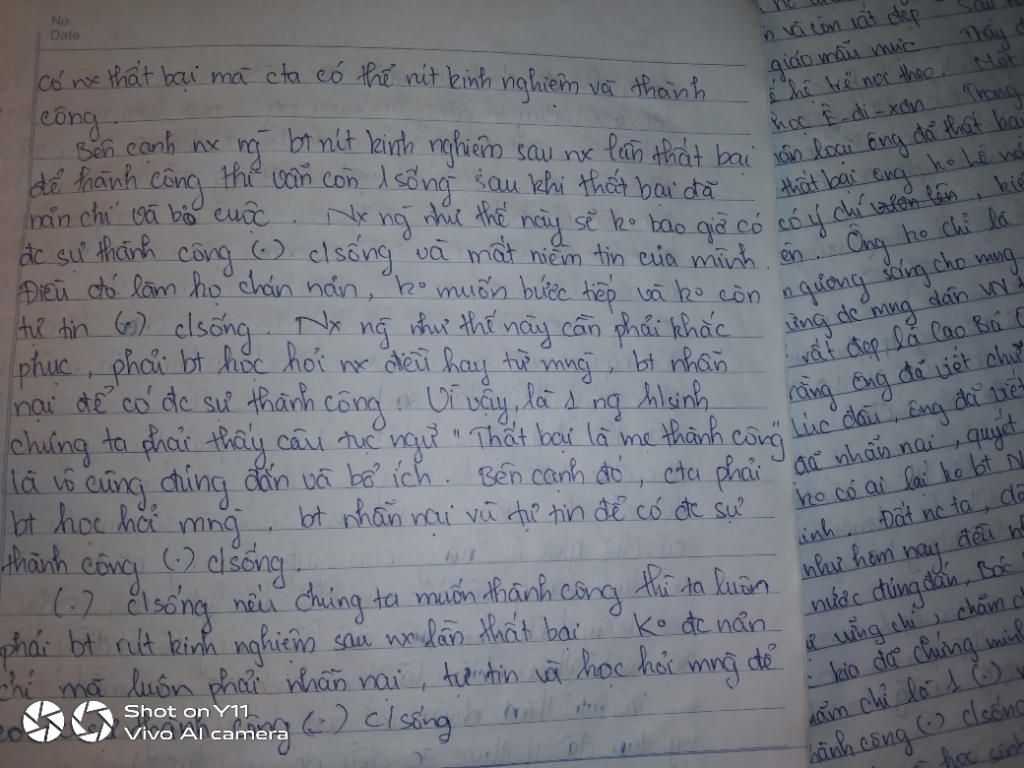 No.
Date
có nx thất bại mà cta có thể rút kinh nghiệm và thành
công.
Bên cạnh nx ng bt rút kinh nghiệm sau nx lần thất bại
để thành công thì vẫn còn 1 sống sau khi thất bại đã
nản chí và bỏ cuộc. Nx ng như thế này sẽ ko bao giờ có
đc sự thành công (.) c/sống và mất niềm tin của mình.
Điều đó làm họ chán nản, ko muốn bước tiếp và ko còn
tự tin (.) c/sống. Nx ng như thế này cần phải khắc
phục, phải bt học hỏi nx điều hay từ mng, bt nhẫn
nại để có đc sự thành công. Vì vậy, là 1 ng h/sinh
chúng ta phải thấy câu tục ngữ "Thất bại là mẹ thành công"
là vô cùng đúng đắn và bổ ích. Bên cạnh đó, cta phải
bt học hỏi mng, bt nhẫn nại và tự tin để có đc sự
thành công (.) c/sống.
(.) c/sống nếu chúng ta muốn thành công thì ta luôn
phải bt rút kinh nghiệm sau nx lần thất bại Ko đc nản
chí mà luôn phải nhẫn nại, tự tin và học hỏi mng để
thành công (.) c/sống
Shot on Y11
Vivo AI camera
và còn rất đẹp. Sau
giáo mẫu mực. Thầy
hệ trẻ noi theo. Một
học Ê-đi-xơn. Trong
nhân loại ông đã thất bại
thất bại ông ko hề nản
có ý chí vươn lên, kiê
Ông ko chỉ là
gương sáng cho mng
đc mng dân VN
rất đẹp là Cao Bá
rằng ông đã viết chữ
lúc đầu, ông đã viết
đã nhẫn nại, quyết
ko có ai lại ko bt
inh. Đất nc ta, dâ
như hôm nay đều nh
nước đúng đắn, Bác
uống chí, chăm ch
bio đã chứng minh
năm chỉ là 1 (.)
thành công (.) c/sống
học sinh